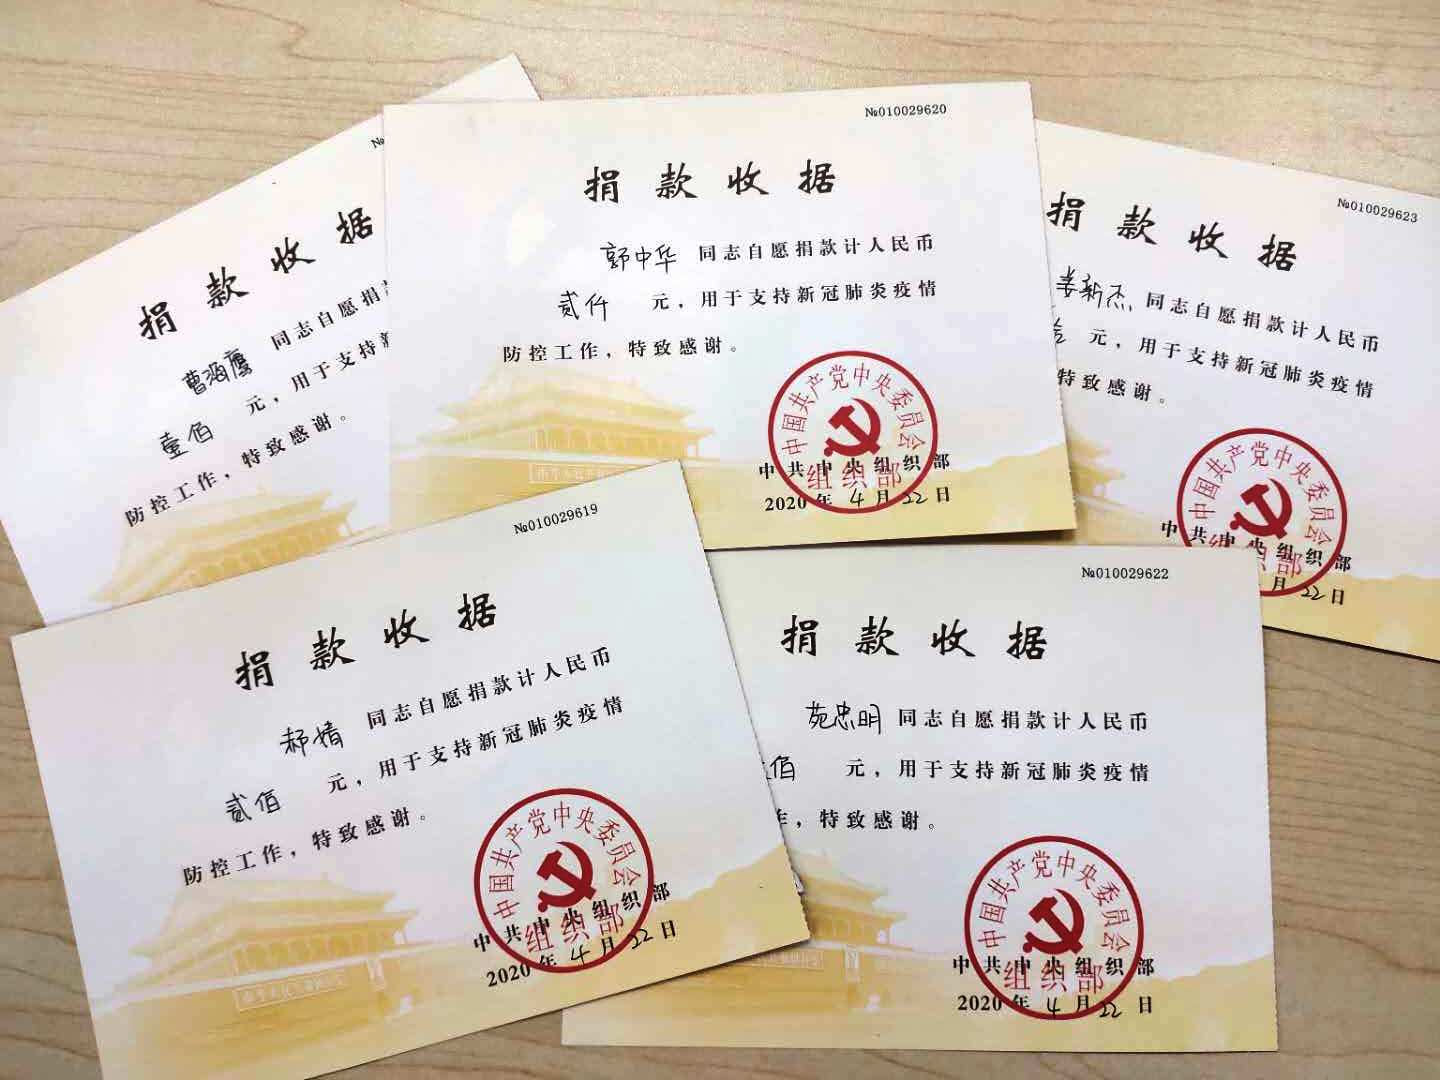 №
捐款收据
曹海鹰 同志自愿捐
壹佰 元，用于支持新
防控工作，特致感谢。
№010029620
捐款收据
郭中华 同志自愿捐款计人民币
贰仟 元，用于支持新冠肺炎疫情
防控工作，特致感谢。
中国共产党中央委员会
组织部
中共中央组织部
2020年4月22日
№010029623
捐款收据
姜新杰 同志自愿捐款计人民币
元，用于支持新冠肺炎疫情
特致感谢。
中国共产党中央委员会
组织部
中共中央组织部
月22日
№010029619
捐款收据
郝婧 同志自愿捐款计人民币
贰佰 元，用于支持新冠肺炎疫情
防控工作，特致感谢。
中国共产党中央委员会
组织部
中共中央组织部
2020年4月22日
№010029622
捐款收据
苑忠明 同志自愿捐款计人民币
佰 元，用于支持新冠肺炎疫情
作，特致感谢。
中国共产党中央委员会
组织部
中共中央组织部
2020年4月22日